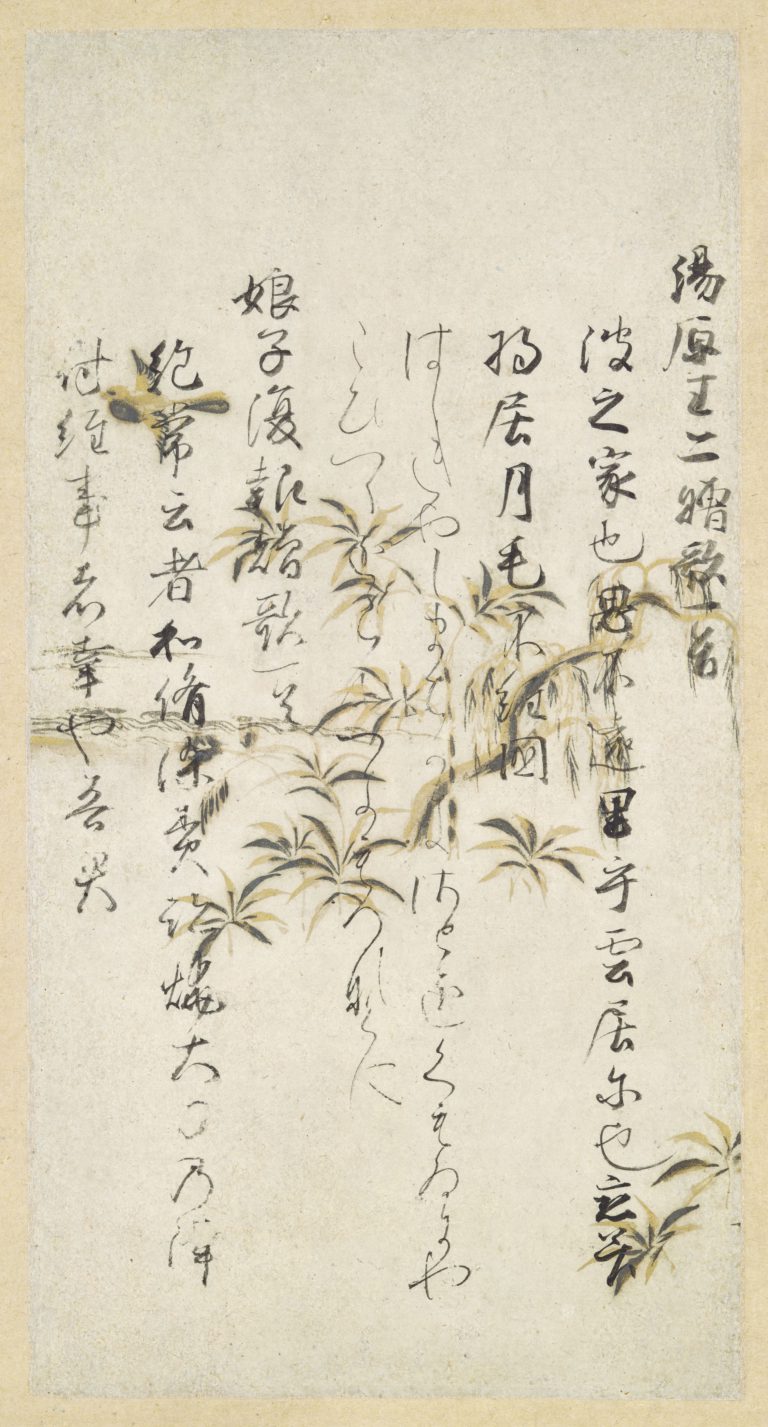 湯原王二贈歌一首
波之家也思不遠里乎雲居尓也戀管
将居月毛不經國
はしきやしまちかきさとをくもゐにや
こひつゝをらむつきもへなくに
娘子復報贈歌一首
絶常云者和備染責跡焼大刀乃隔
付經事者幸也吾君